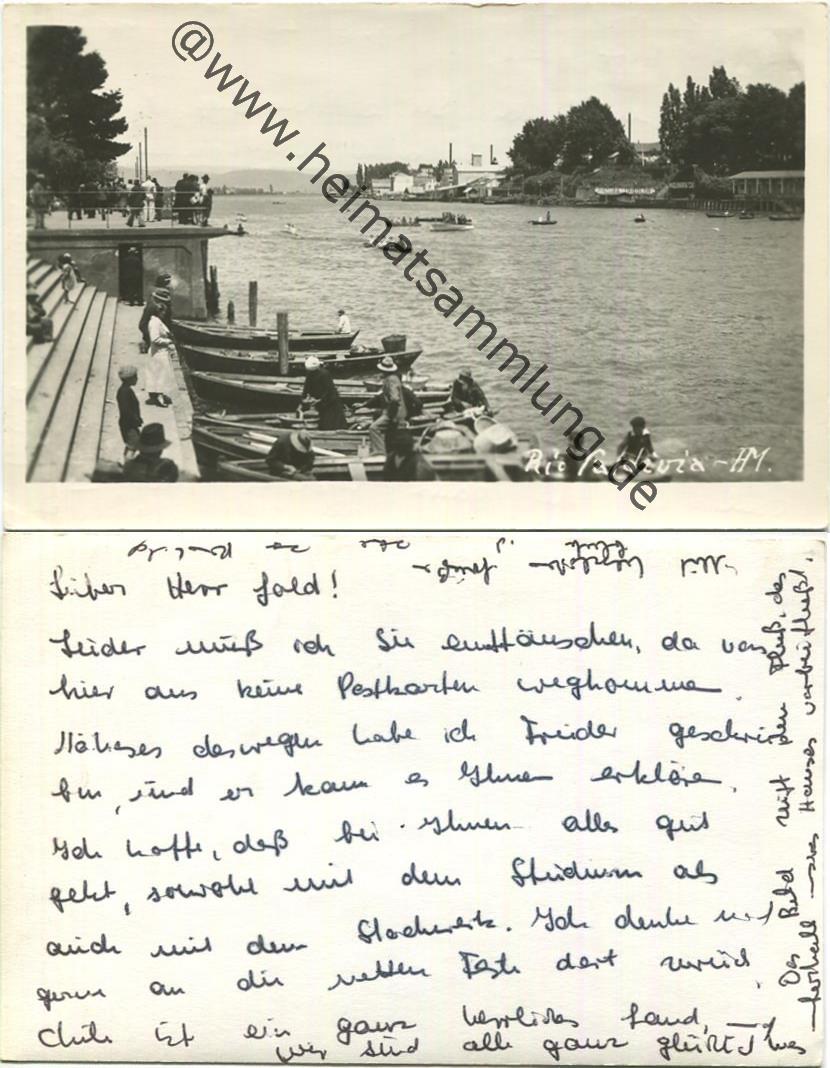 @www.heimatsammlung.de
Rio Valdivia - HM.
Lieber Herr Gold!
Leider muß ich Sie enttäuschen, da von
hier aus keine Postkarten wegkommen.
Näheres deswegen habe ich Frieder geschrie
ben, und er kann es Ihnen erklären.
Ich hoffe, daß bei Ihnen alles gut
geht, sowohl mit dem Studium als
auch mit dem Stockwerk. Ich denke noch
gerne an die netten Feste dort zurück.
Chile ist ein ganz herrliches Land, und
wir sind alle ganz glücklich
Das Bild zeigt den Fluß, der
unterhalb des Hauses vorbeifließt.